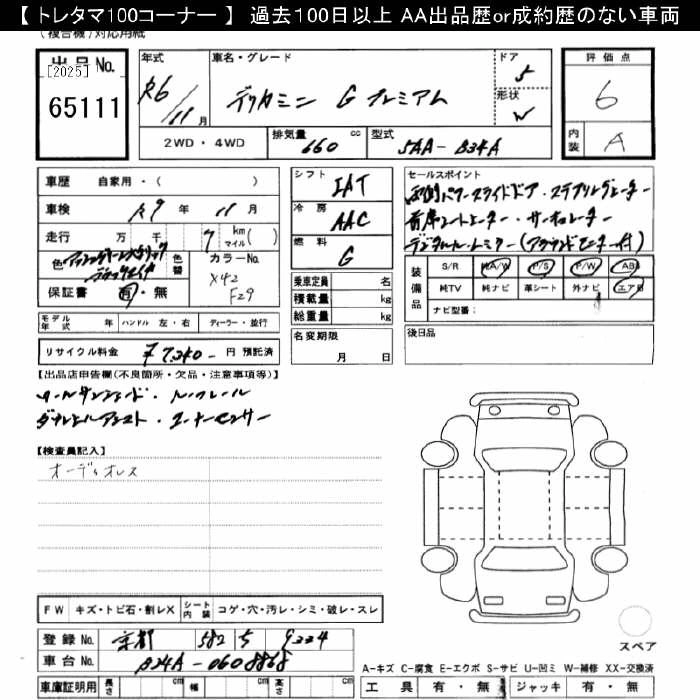 【 トレタマ100コーナー 】 過去100日以上 AA出品歴or成約歴のない車両
(複合機)対応用紙
出品No.
[2025]
65111
年式 R6/11月
車名・グレード デリカミニ G プレミアム
ドア 5
形状 W
2WD・4WD
排気量 660 cc
型式 5AA-B34A
評価点 6
内装 A
車歴 自家用・( )
車検 R9年 11月
走行 万 千 7 km マイル( )
色
色替
カラーNo.
X42
F29
保証書 有・無
モデル年式 年 ハンドル 左・右 ディーラー・並行
リサイクル料金 ¥7,340- 円 預託済
シフト IAT
冷房 AAC
燃料 G
乗車定員 名
積載量 kg
総重量 kg
名変期限 月 日
セールスポイント
両側パワースライドドア・ステアリングヒーター
前席シートヒーター・サーキュレーター
デジタルルームミラー(アラウンドモニター付)
装備品
S/R 純A/W P/S P/W ABS
純TV 純ナビ 革シート 外ナビ エアB
ナビ型番:
後日品
【出品店申告欄(不良箇所・欠品・注意事項等)】
ロールサンシェード・ルーフレール
ダウンヒルアシスト・コーナーセンサー
【検査員記入】
オーディオレス
FW キズ・トビ石・割レX
シート内装 コゲ・穴・汚レ・シミ・破レ・スレ
登録No. 京都 582 5 9224
車台No. B34A-0608868
車庫証明用 長さ cm 幅 cm 高さ cm
スペア
A-キズ C-腐食 E-エクボ S-サビ U-凹ミ W-補修 XX-交換済
工具 有・無 ジャッキ 有・無